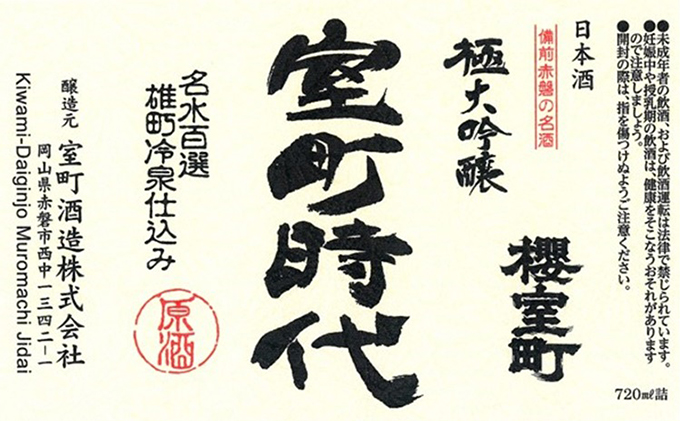 ●未成年者の飲酒、および飲酒運転は法律で禁じられています。
●妊娠中や授乳期の飲酒は、健康をそこなうおそれがあります
ので注意しましょう。
●開封の際は、指を傷つけぬようご注意ください。
720㎖詰
日本酒
備前赤磐の名酒
櫻室町
極大吟醸
室町時代
名水百選
雄町冷泉仕込み
原酒
醸造元 室町酒造株式会社
岡山県赤磐市西中一三四二-一
Kiwami-Daiginjo Muromachi Jidai